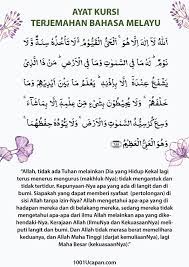 AYAT KURSI
TERJEMAHAN BAHASA MELAYU
اَللهُ لَآ اِلٰهَ اِلَّا هُوَ ۚ اَلْحَيُّ الْقَيُّوْمُ ۚ لَا تَأْخُذُهٗ سِنَةٌ وَّلَا
نَوْمٌ ۗ لَهٗ مَا فِى السَّمٰوٰتِ وَمَا فِى الْاَرْضِ ۗ مَنْ ذَا الَّذِيْ
يَشْفَعُ عِنْدَهٗٓ اِلَّا بِاِذْنِهٖ ۗ يَعْلَمُ مَا بَيْنَ اَيْدِيْهِمْ وَمَا خَلْفَهُمْ ۚ
وَلَا يُحِيْطُوْنَ بِشَيْءٍ مِّنْ عِلْمِهٖٓ اِلَّا بِمَا شَآءَ ۚ وَسِعَ
كُرْسِيُّهُ السَّمٰوٰتِ وَالْاَرْضَ ۚ وَلَا يَـُٔوْدُهٗ حِفْظُهُمَا ۚ
وَهُوَ الْعَلِيُّ الْعَظِيْمُ
"Allah, tidak ada Tuhan melainkan Dia yang Hidup Kekal lagi
terus menerus mengurus (makhluk-Nya): tidak mengantuk dan
tidak tertidur. Kepunyaan-Nya apa yang ada di langit dan di
bumi. Siapakah yang dapat memberi syafaat (pertolongan) di
sisi Allah tanpa izin-Nya? Allah mengetahui apa-apa yang di
hadapan mereka dan di belakang mereka, sedang mereka tidak
mengetahui apa-apa dari Ilmu Allah melainkan apa yang dike-
hendaki-Nya. Kerajaan Allah (IlmuNya dan KekuasaanNya) meli-
puti langit dan bumi. Dan Allah tidak merasa berat memelihara
keduanya, dan Allah Maha Tinggi (darjat kemuliaanNya), lagi
Maha Besar (kekuasaanNya)."
1001Ucapan.com